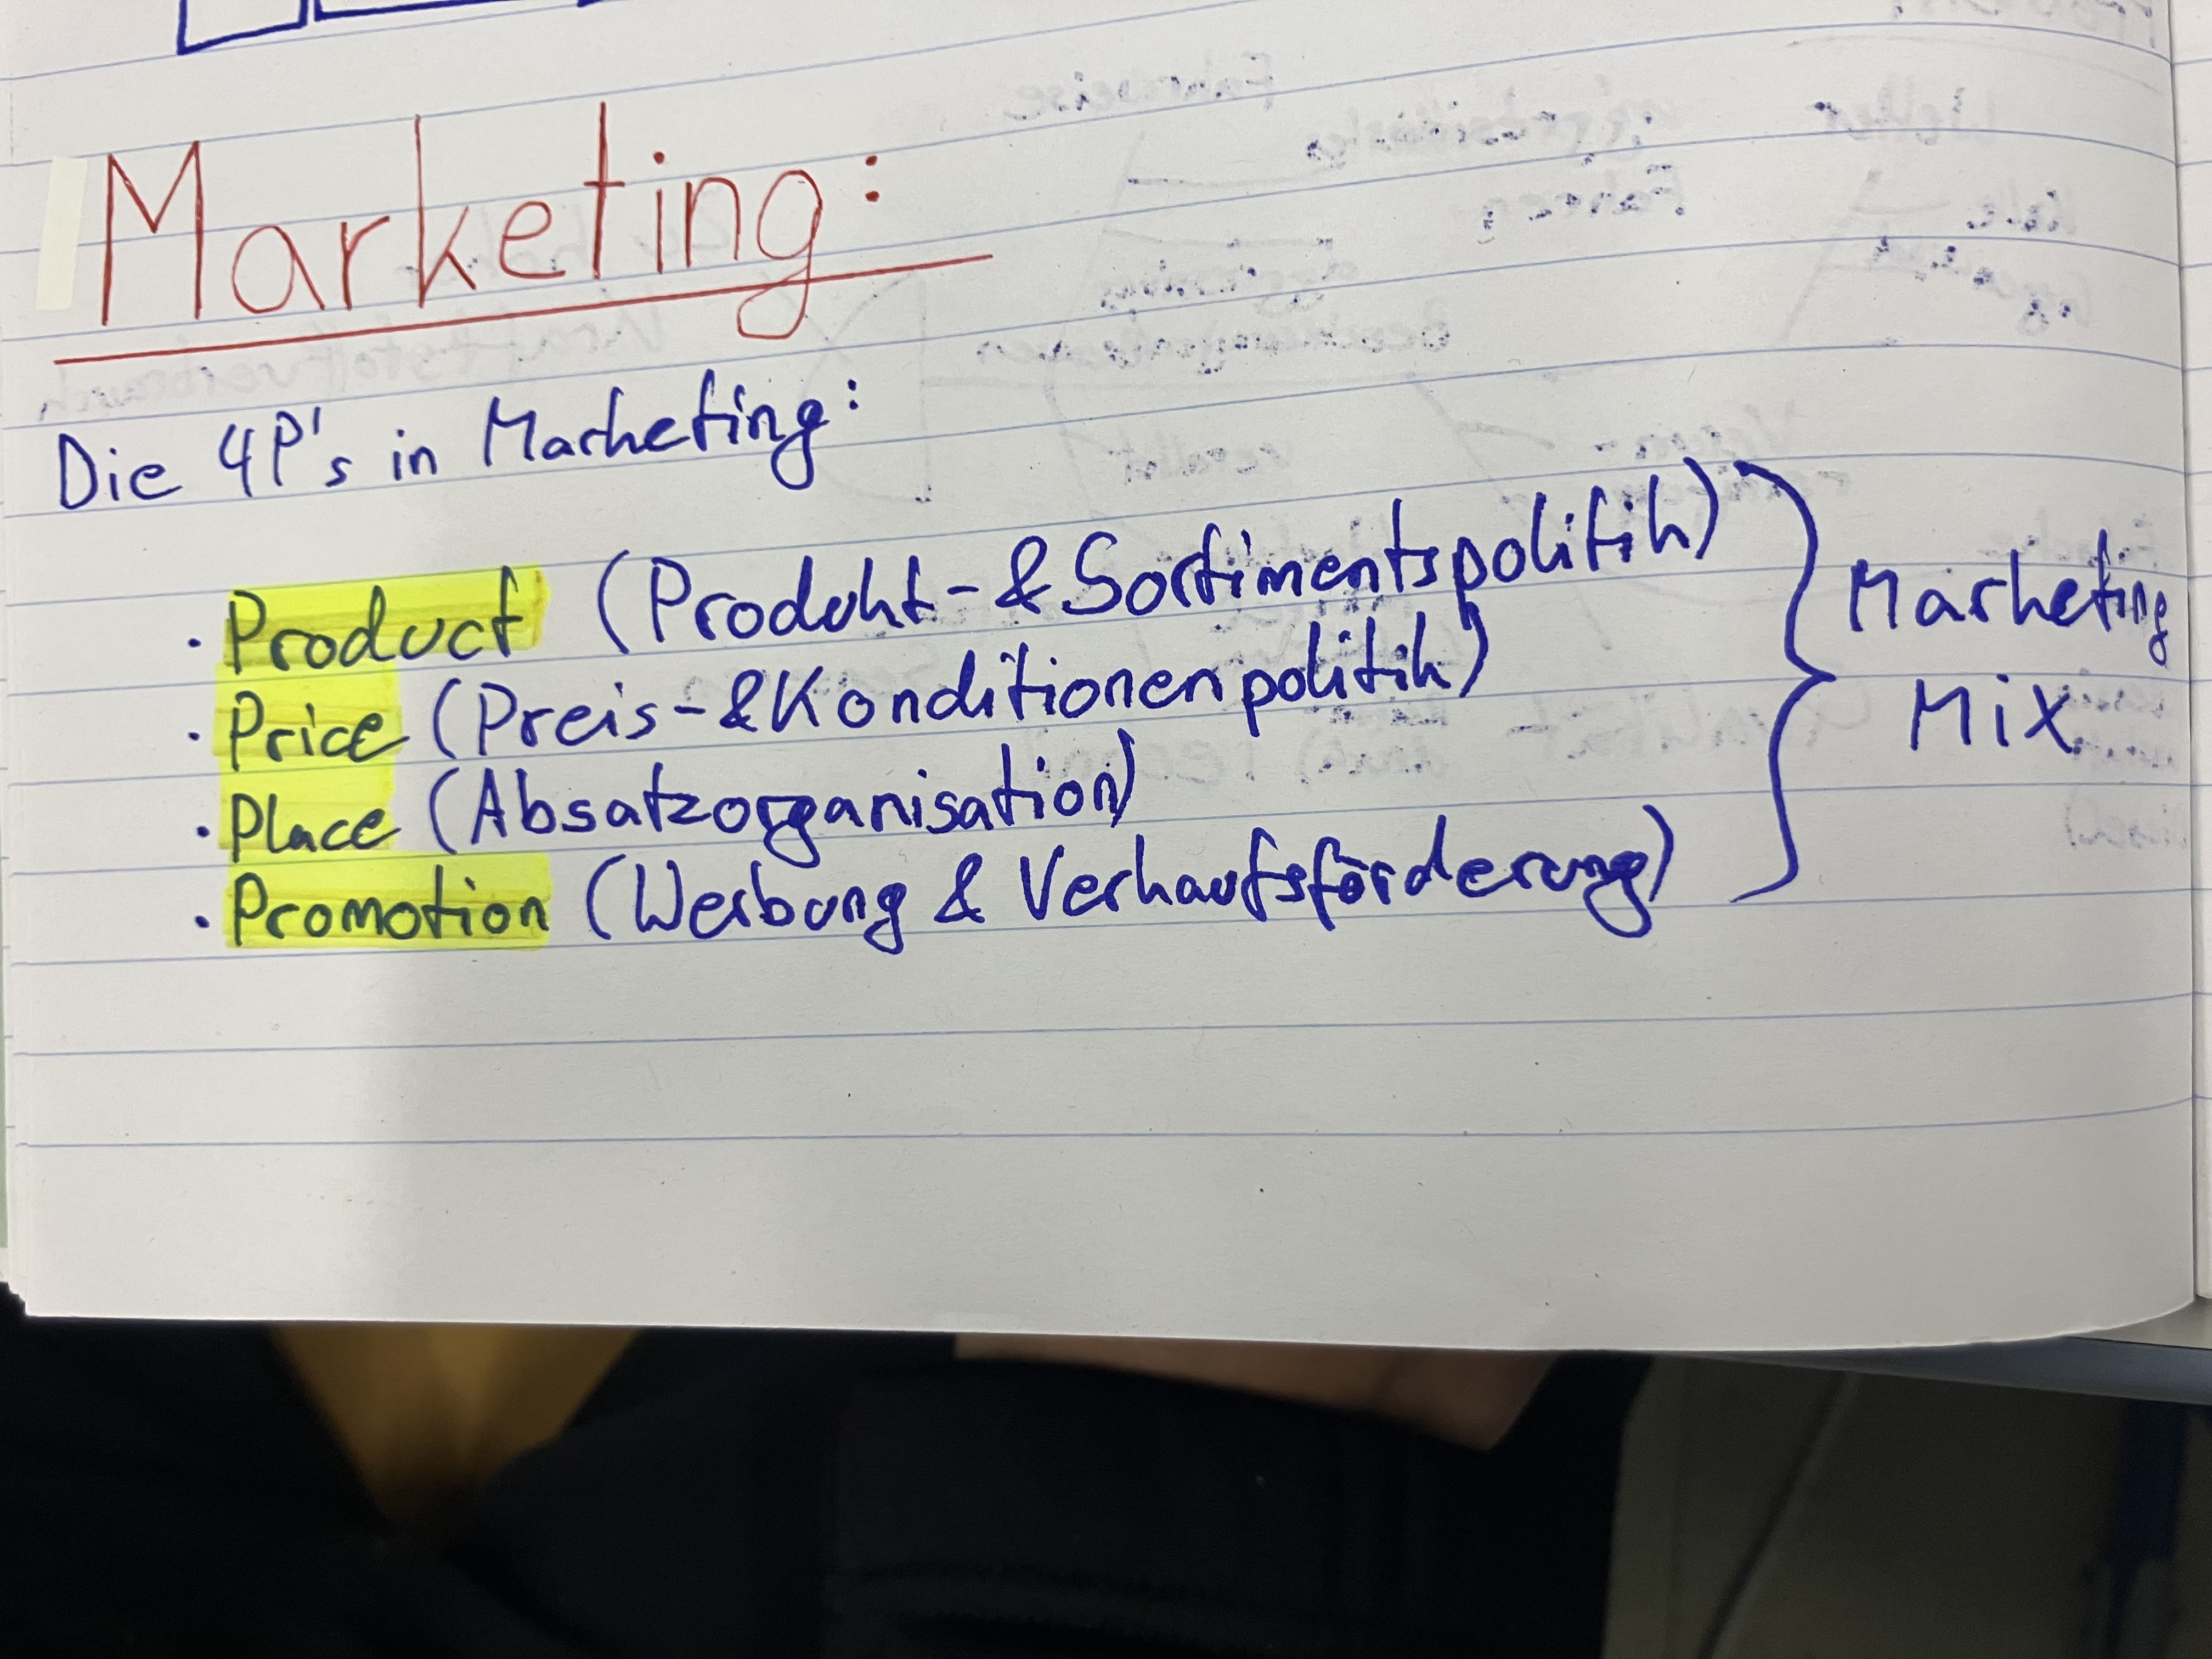 Marketing:
Die 4P's in Marketing:
· Product (Produkt-&Sortimentspolitik)
· Price (Preis-&Konditionenpolitik)
· Place (Absatzorganisation)
· Promotion (Werbung & Verkaufsförderung)
Marketing
Mix